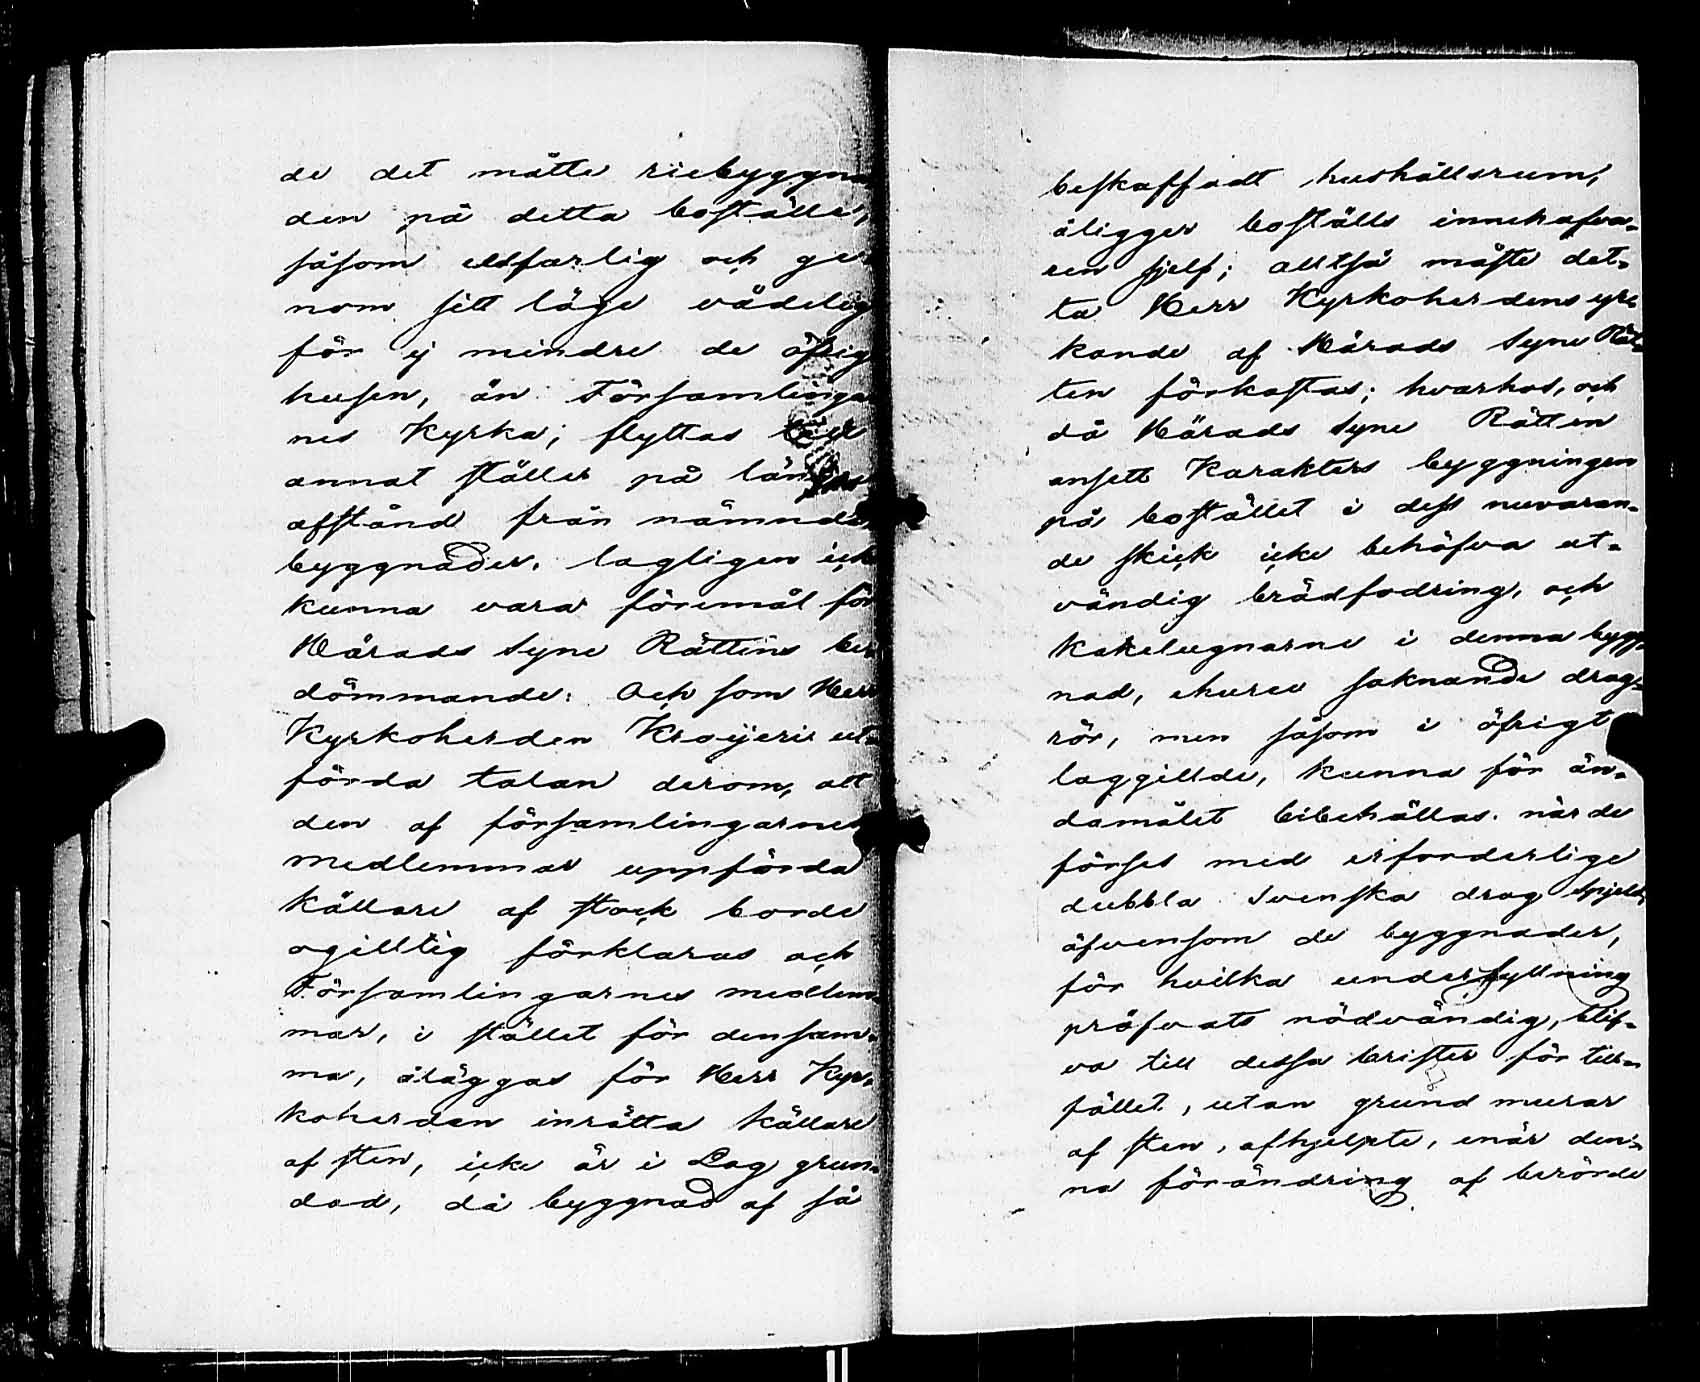 de det måtte riebyggna
den på detta boställe,
såsom eldfarlig och ge
nom sitt läge vådelig
för ej mindre de öfrig
husen, än Församlinga
nes Kyrka; flyttas till
annat ställe på
afstånd från nämnda
byggnader, lagligen ick
kunna vara föremål för
Härads Syne Rättens be
dömmande: Och som Herr
Kyrkoherden Kroijeri ut-
förda talan derom, att
den af församlingarnes
medlemmar uppförda
källare af stock borde
ogilltig förklaras och
Församlingarnes medlem-
mar, i stället för densam-
ma, åläggas för Herr Kyr-
koherden inrätta källare
af sten, icke är i Lag grun-
dad, då byggnad af så
beskaffadt hushållsrum,
åligger boställs innehafva-
ren sjelf; alltså måste det-
ta Herr Kyrkoherdens yr-
kande af Härads Syne Rät-
ten förkastas; hvarhos, och
då Härads Syne Rätten
ansett Karakters byggningen
på bostället i dess nuvaran-
de skick icke behöfva ut-
vändig brädfodring, och
kakelugnarne i denna bygg-
nad, ehuru saknande drag-
rör, men såsom i öfrigt
laggillde, kunna för än-
damålet bibehållas. när de
förses med erforderlige
dubbla Svenska drag spjeld,
äfvensom de byggnader,
för hvilka underfyllning
pröfvats nödvändig, blif-
va till dessa brister för till-
fället, utan grund murar
af sten, afhjelpte, enär den-
na förändring af berörde